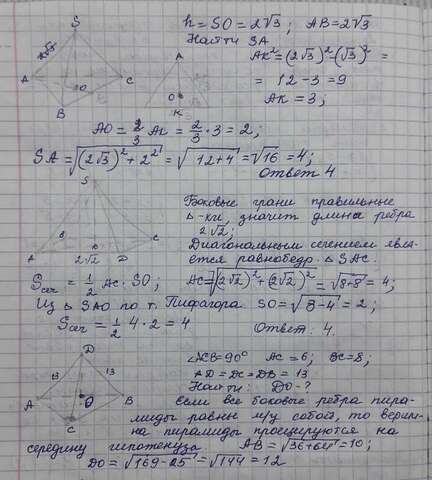 h = SO = 2√3; AB = 2√3
Найти SA
S
2√3
A
C
B
O
A
O
K
AK² = (2√3)² - (√3)² =
= 12 - 3 = 9
AK = 3;
AO = 2/3 AK = 2/3 · 3 = 2;
SA = √((2√3)² + 2²) = √(12+4) = √16 = 4;
Ответ 4
S
A
2√2
D
C
Боковые грани правильные
Δ-ки, значит длина ребра
2√2;
Диагональным сечением явля-
ется равнобедр. Δ SAC.
Sсеч = 1/2 AC · SO; AC = √((2√2)² + (2√2)²) = √(8+8) = 4;
Из Δ SAO по т. Пифагора SO = √(8-4) = 2;
Sсеч = 1/2 4 · 2 = 4
Ответ: 4.
D
13
13
A
O
B
C
∠ACB = 90° AC = 6; BC = 8;
AD = DC = DB = 13
Найти: DO - ?
Если все боковые ребра пира-
миды равны м/у собой, то верши-
на пирамиды проецируются на
середину гипотенуза AB = √(36+64) = 10;
DO = √(169-25) = √144 = 12